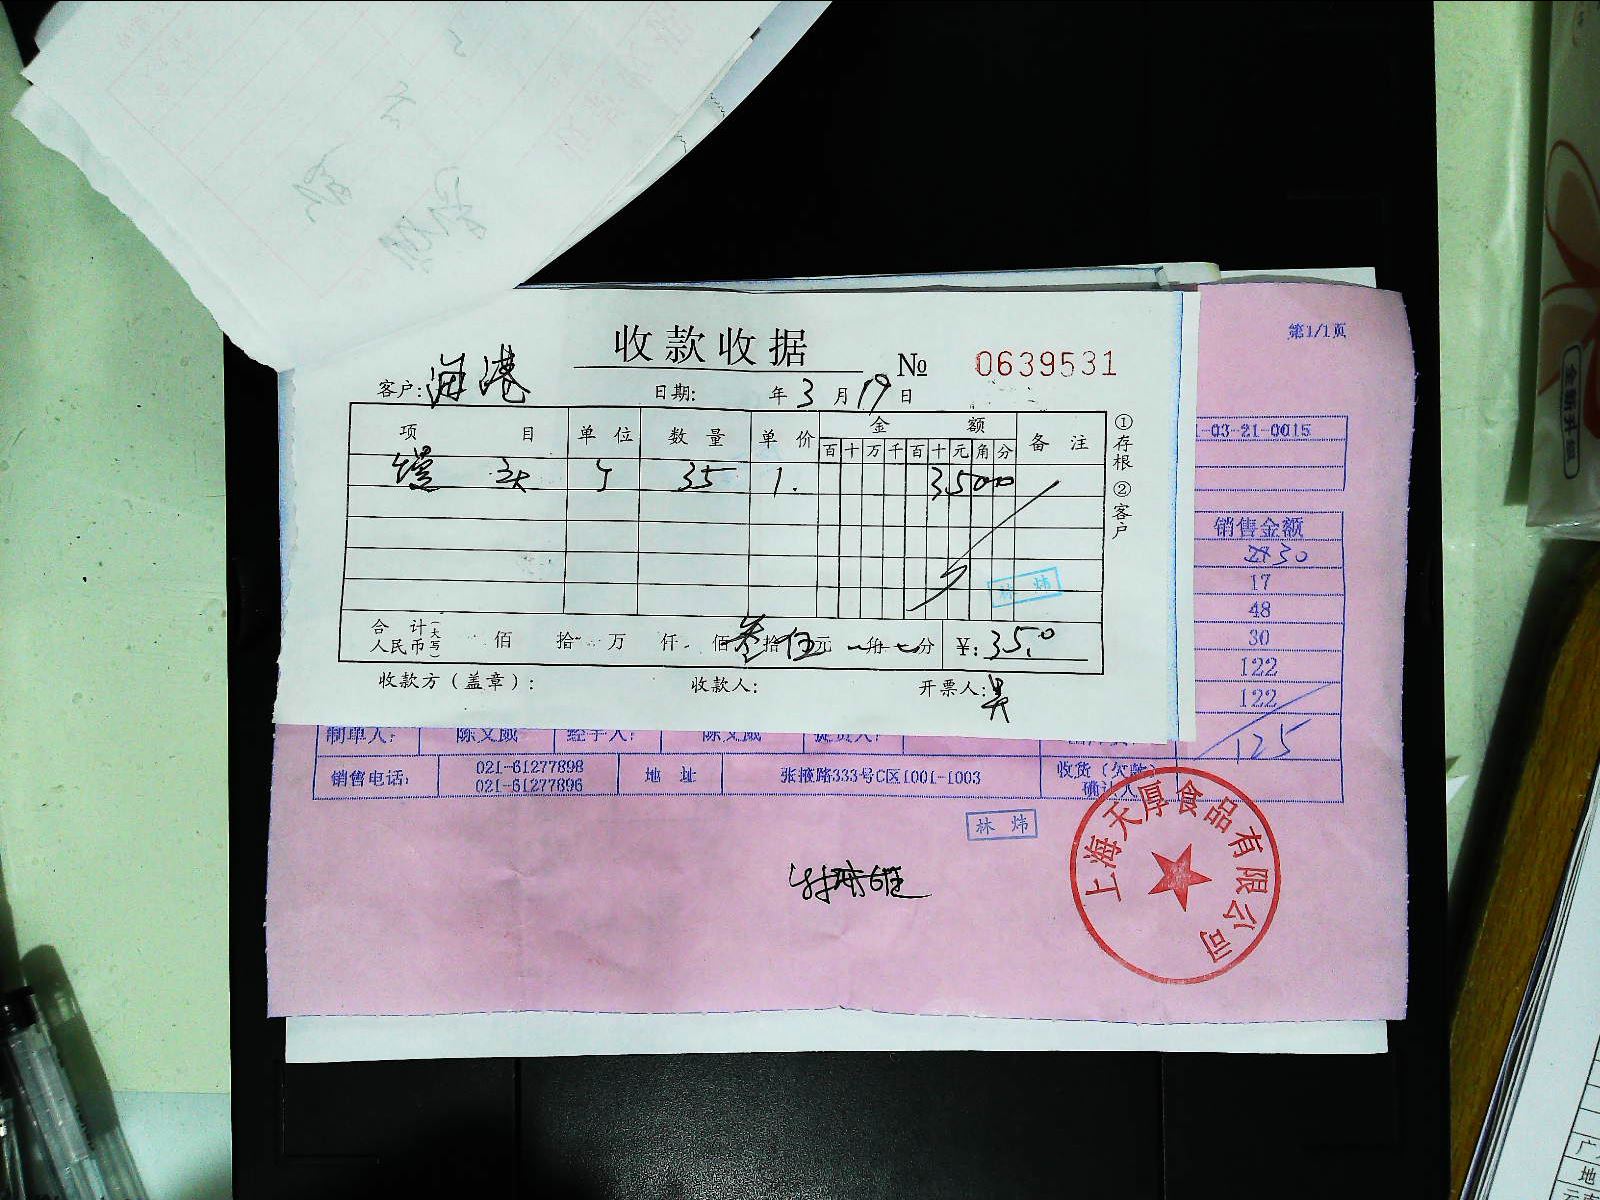 第1/1页
收款收据
№ 0639531
客户: 海港
日期: 年 3 月 19 日
项 目 单位 数量 单价 金额 备注
百 十 万 千 百 十 元 角 分
馒头 个 35 1. 3500
①存根 ②客户
林炜
合计 人民币(大写) 佰 拾 万 仟 佰 叁 拾 伍 元 角 分 ¥: 35.0
收款方(盖章): 收款人: 开票人: 吴
1-03-21-0015
销售金额
30
17
48
30
122
122
125
制单人: 陈文威 经手人: 陈文威 提货人:
销售电话: 021-61277898
021-61277896
地 址 张掖路333号C区1001-1003 收货(欠款)
确认人
林炜
上海天厚食品有限公司